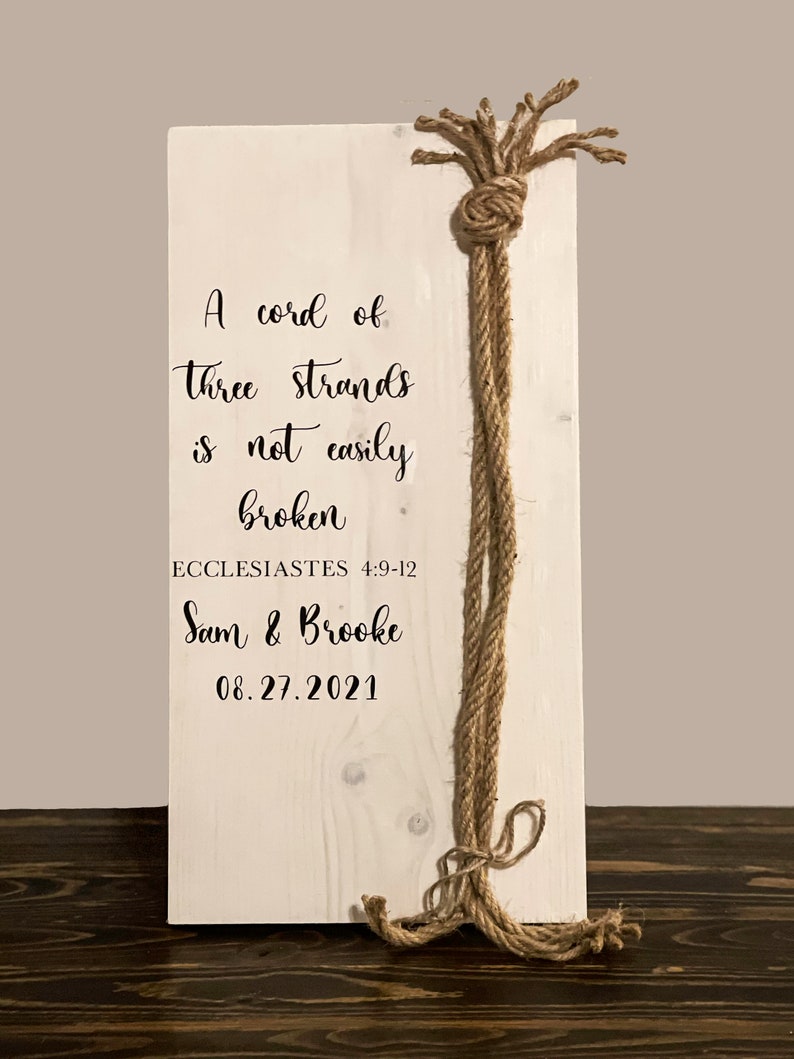 A cord of
three strands
is not easily
broken
ECCLESIASTES 4:9-12
Sam & Brooke
08.27.2021